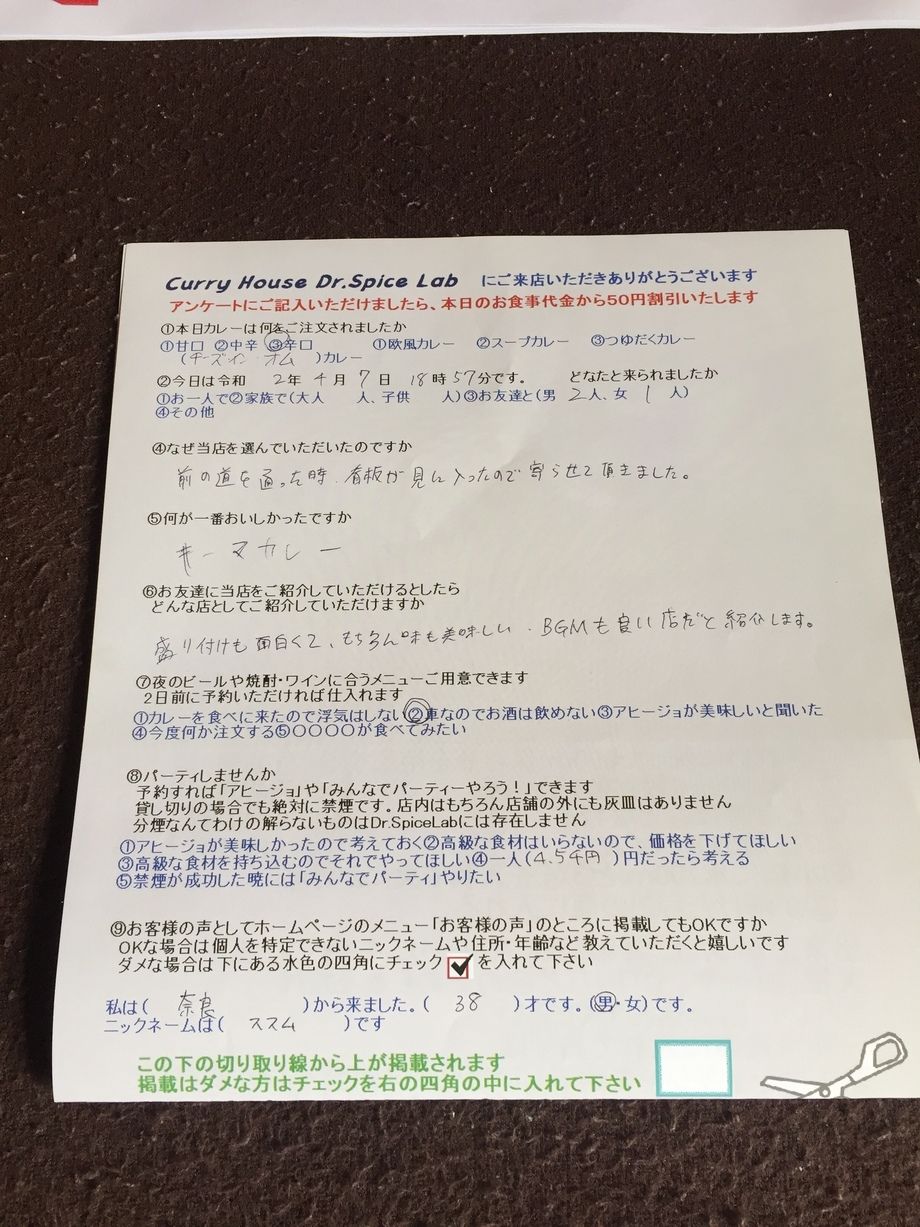 Curry House Dr.Spice Lab にご来店いただきありがとうございます
アンケートにご記入いただけましたら、本日のお食事代金から50円割引いたします
①本日カレーは何をご注文されましたか
①甘口 ②中辛 ③辛口 ①欧風カレー ②スープカレー ③つゆだくカレー
(チーズイン オム )カレー
②今日は令和 2年 4月 7日 18時 57分です。 どなたと来られましたか
①お一人で②家族で(大人 人、子供 人)③お友達と(男 2人、女 1人)
④その他
④なぜ当店を選んでいただいたのですか
前の道を通った時、看板が見に入ったので寄らせて頂きました。
⑤何が一番おいしかったですか
キーマカレー
⑥お友達に当店をご紹介していただけるとしたら
どんな店としてご紹介していただけますか
盛り付けも面白くて、もちろん味も美味しい、BGMも良い店だと紹介します。
⑦夜のビールや焼酎・ワインに合うメニューご用意できます
2日前に予約いただければ仕入れます
①カレーを食べに来たので浮気はしない②車なのでお酒は飲めない③アヒージョが美味しいと聞いた
④今度何か注文する⑤〇〇〇〇が食べてみたい
⑧パーティしませんか
予約すれば「アヒージョ」や「みんなでパーティーやろう!」できます
貸し切りの場合でも絶対に禁煙です。店内はもちろん店舗の外にも灰皿はありません
分煙なんてわけの解らないものはDr.SpiceLabには存在しません
①アヒージョが美味しかったので考えておく②高級な食材はいらないので、価格を下げてほしい
③高級な食材を持ち込むのでそれでやってほしい④一人(4.5千円 )円だったら考える
⑤禁煙が成功した暁には「みんなでパーティ」やりたい
⑨お客様の声としてホームページのメニュー「お客様の声」のところに掲載してもOKですか
OKな場合は個人を特定できないニックネームや住所・年齢など教えていただくと嬉しいです
ダメな場合は下にある水色の四角にチェック を入れて下さい
私は( 奈良 )から来ました。( 38 )才です。(男・女)です。
ニックネームは( ススム )です
この下の切り取り線から上が掲載されます
掲載はダメな方はチェックを右の四角の中に入れて下さい